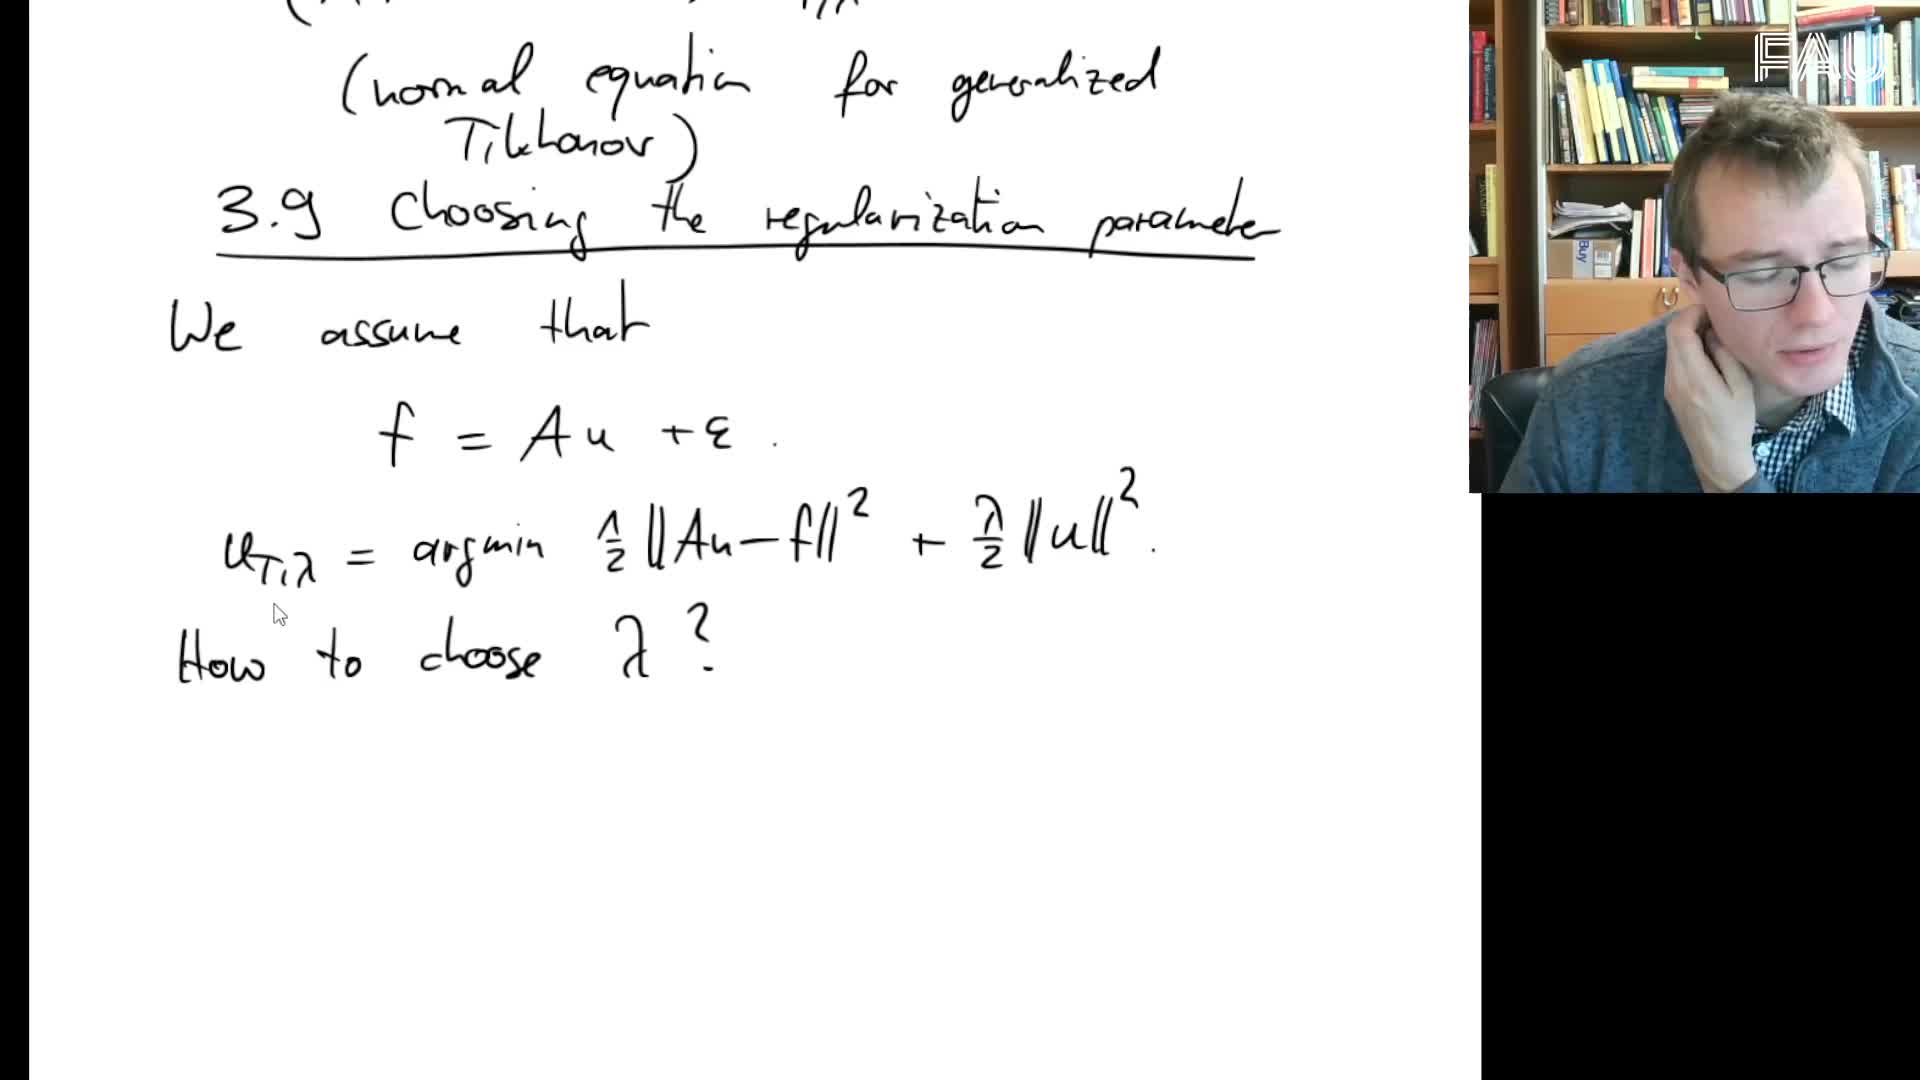 (normal equation for generalized
Tikhonov)
3.9 Choosing the regularization parameter
We assume that
f = Au + ε .
u_{T,λ} = argmin 1/2 ||Au - f||² + λ/2 ||u||² .
How to choose λ ?
FAU
Buy